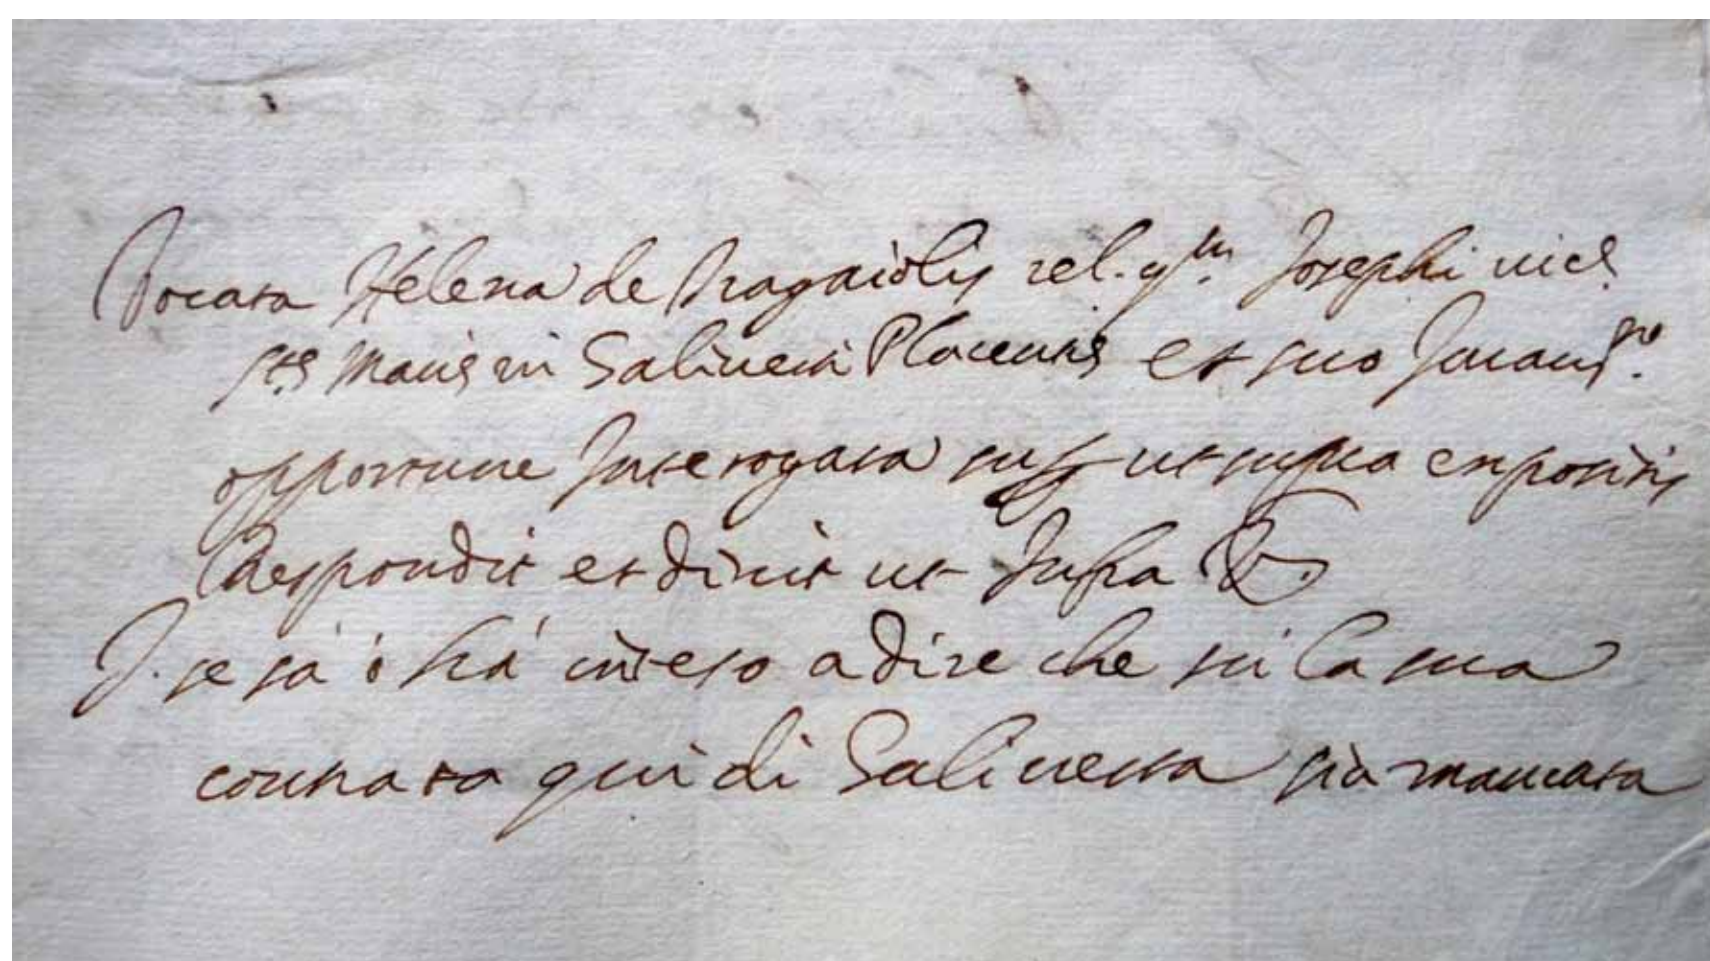 Vocata Helena de Tragaiolis rel. qm. Josephi vice
ste Marie in Salineta Placentie et suo Juramto.
opportune Interogata sup ut supra expositis
Respondit et dixit ut Infra &.
I. se sa ó há inteso a dire che sii la sua
counata qui di Salinetta sia mancata